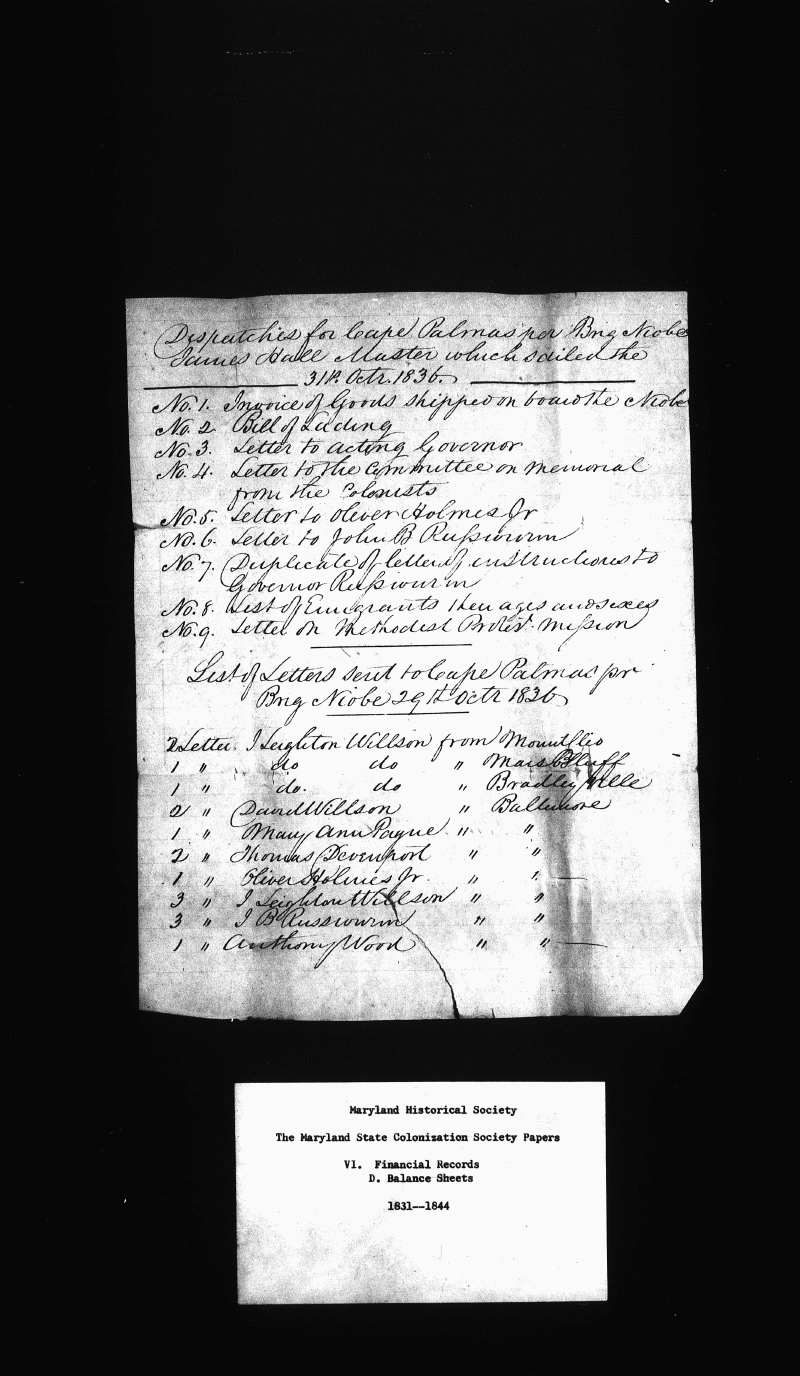 Dispatches for Cape Palmas per Brig Niobe
James Hall Master which sailed the
31st Octr. 1836.
No. 1. Invoice of Goods shipped on board the Niobe
No. 2 Bill of Lading
No. 3. Letter to acting Governor
No. 4. Letter to the Committee on memorial
from the Colonists
No. 5. Letter to Oliver Holmes Jr
No. 6. Letter to John B Russwurm
No. 7. Duplicate of letter of instructions to
Governor Russwurm
No. 8. List of Emigrants their ages and sexes
No. 9. Letter on Methodist Mission
List of Letters sent to Cape Palmas pr
Brig Niobe 29th Octr 1836
2 Letter. J Leighton Willson from Mount Clio
1 " do do " Mars Bluff
1 " do. do " Bradleyville
2 " David Willson " Baltimore
1 " Mary Ann Payne " "
2 " Thomas Devenport " "
1 " Oliver Holmes Jr. " "
3 " J Leighton Willson " "
3 " J B Russwurm " "
1 " Anthony Wood " "
Maryland Historical Society
The Maryland State Colonization Society Papers
V1. Financial Records
D. Balance Sheets
1831--1844